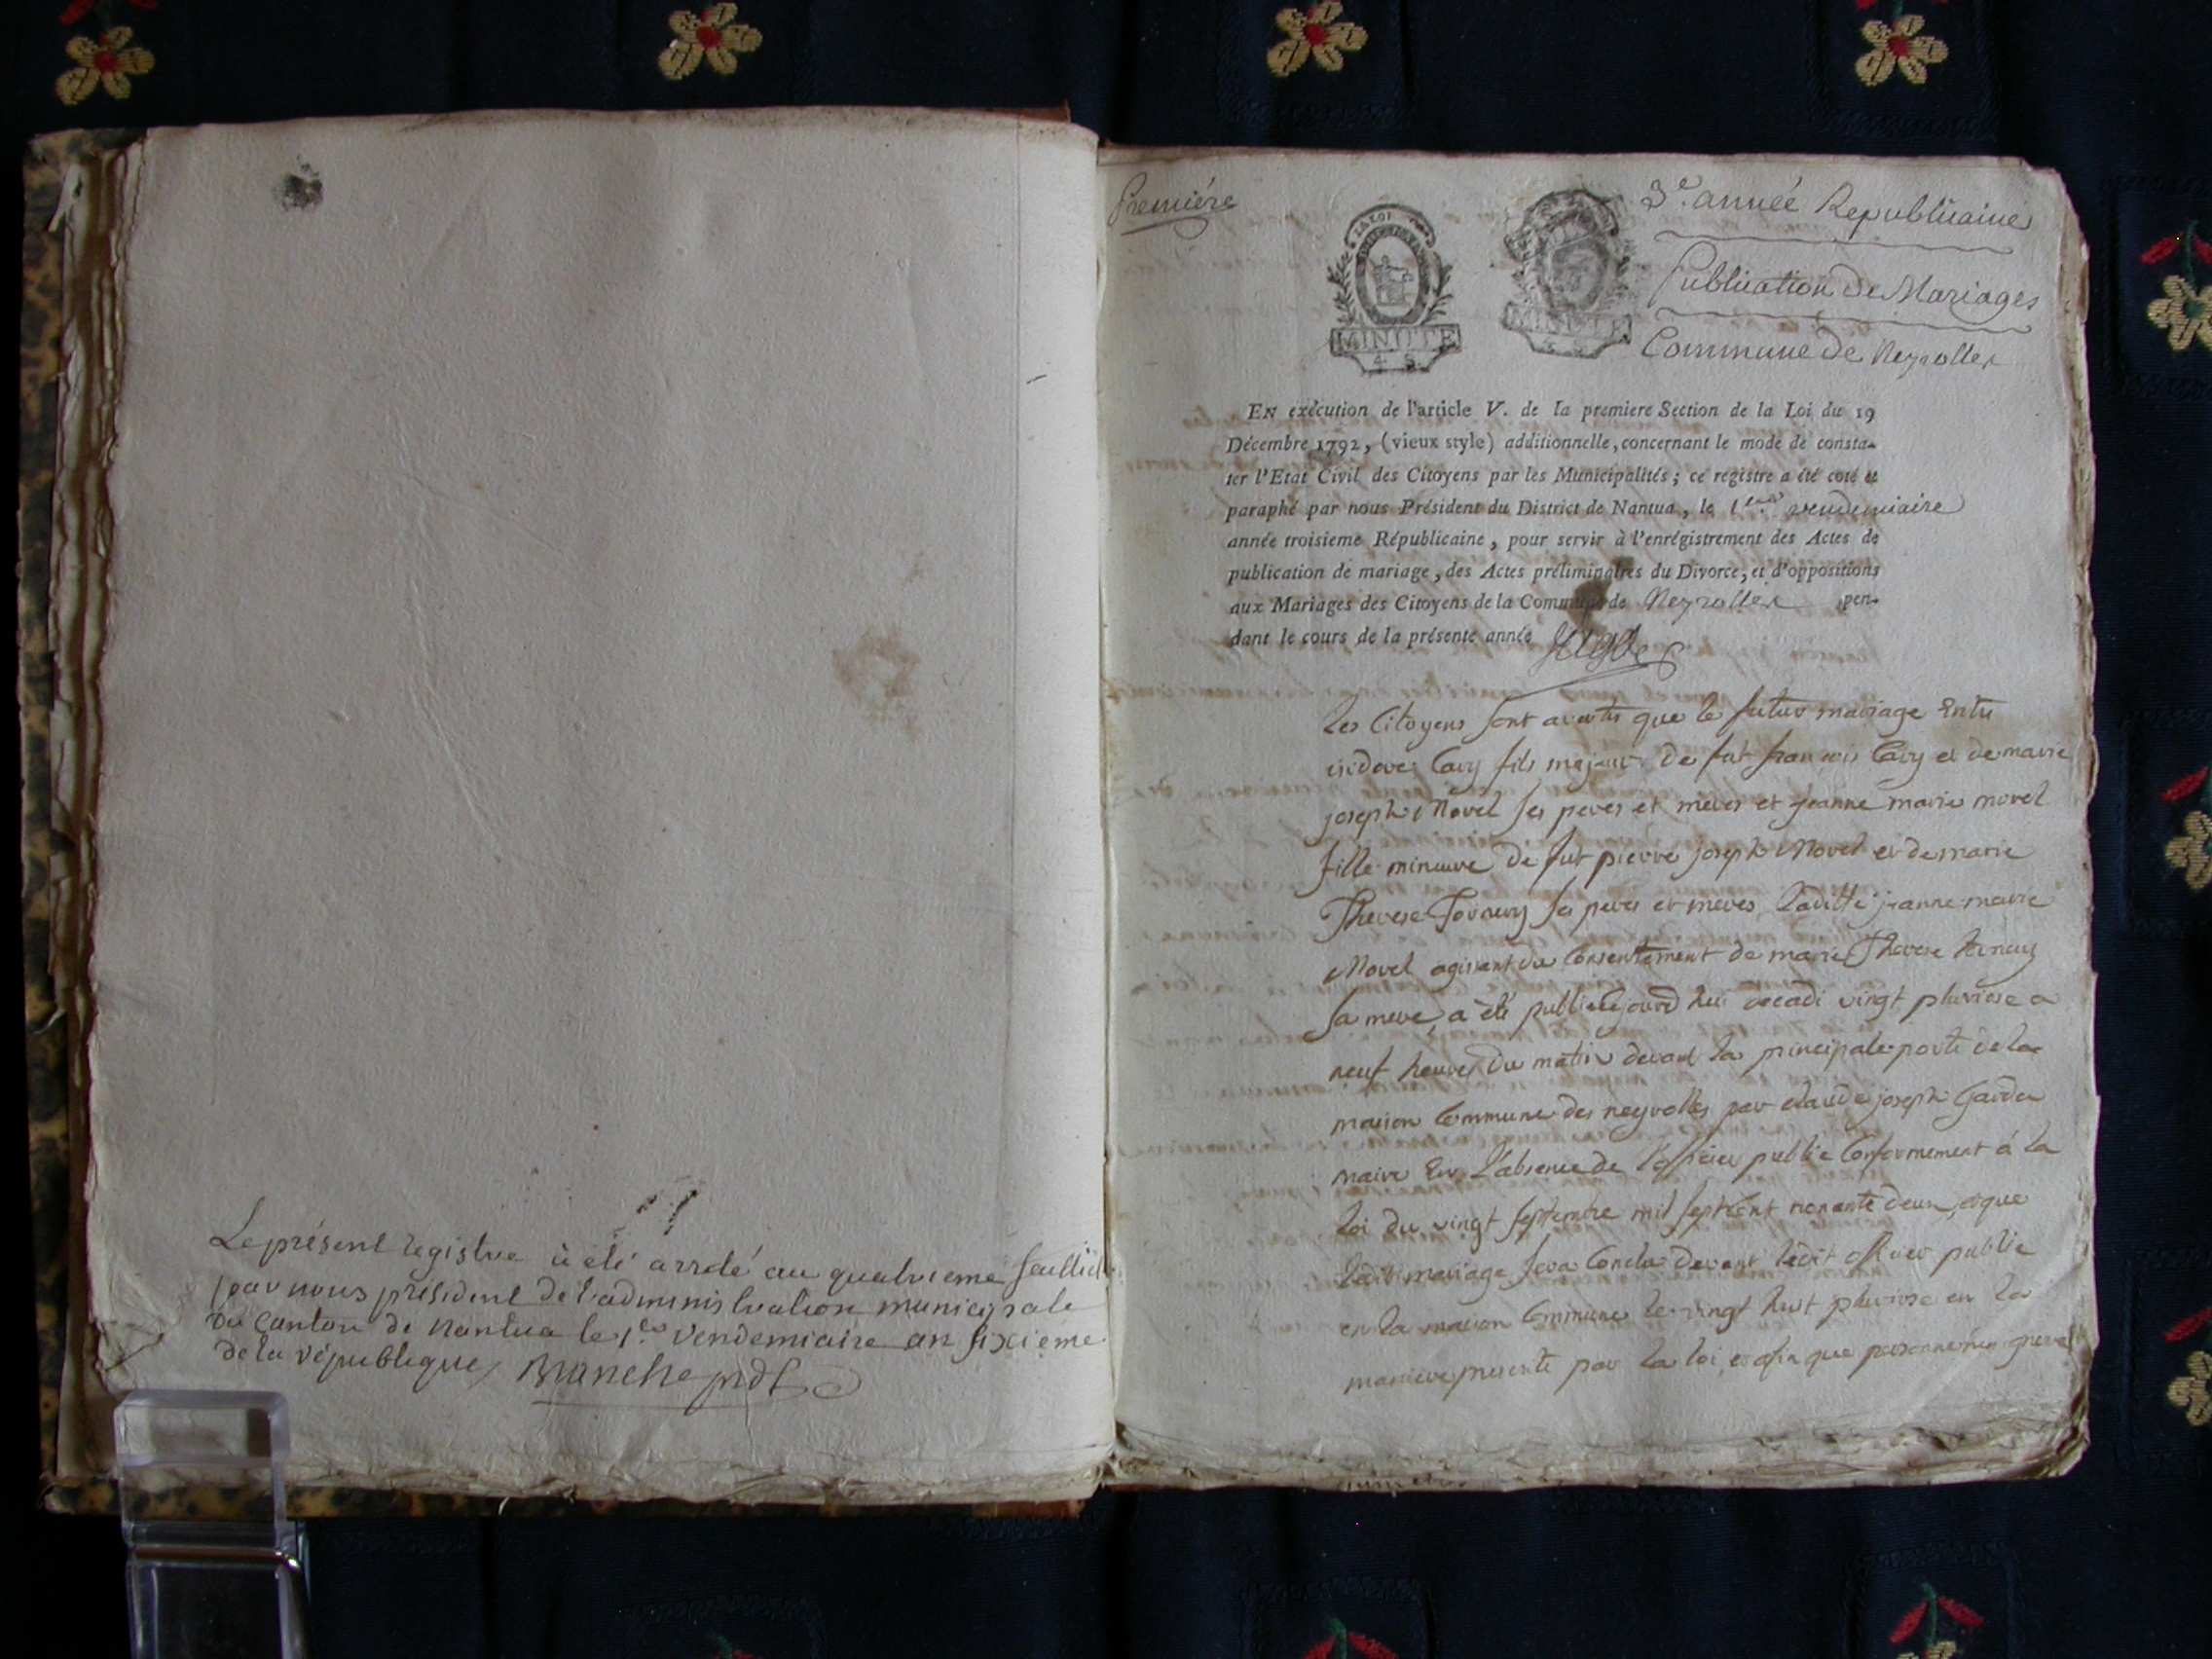 Le présent registre à été arreté au quatrieme feuillet
par nous président de l'administration municipale
du Canton de Nantua le 1.er Vendemiaire an sixieme
de la république
Premiére
LA LOI
MINUTE
4. S.
MINUTE
3.e année Republicaine
Publication de Mariages
Commune de Neyrolles
EN exécution de l'article V. de la premiere Section de la Loi du 19
Décembre 1792, (vieux style) additionnelle, concernant le mode de consta-
ter l'Etat Civil des Citoyens par les Municipalités; ce registre a été coté et
paraphé par nous Président du District de Nantua, le 1er vendemiaire
année troisieme Républicaine, pour servir à l'enrégistrement des Actes de
publication de mariage, des Actes préliminaires du Divorce, et d'oppositions
aux Mariages des Citoyens de la Commune de Neyrolles pen-
dant le cours de la présente année
les Citoyens sont avertis que le futur mariage Entre
isidore Cary fils majeur de fut francois Cary et de marie
joseph Novel ses peres et meres et jeanne marie novel
fille mineure de fut pierre joseph Novel et de marie
Therese ses peres et meres laditte jeanne marie
Novel agissant du Consentement de marie Therese
sa mere, a été publié aujourd hui decadi vingt pluviose a
neuf heures du matin devant la principale porte de la
maison Commune des neyrolles par claude joseph
maire En l'absence de l'officier public Conformement á la
loi du vingt septembre mil sept cent nonante deux, et que
ledit mariage sera Conclu devant ledit officier public
en la maison Commune le vingt huit pluviose en la
maniere prescrite par la loi, et afin que personne n'en